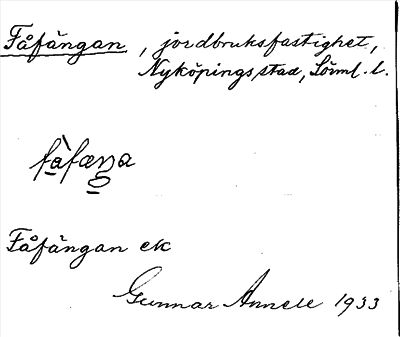 Fåfängan, jordbruksfastighet,
Nyköpings stad, Sörml. l.
fàfæŋa
Fåfängan ek
Gunnar Annell 1933